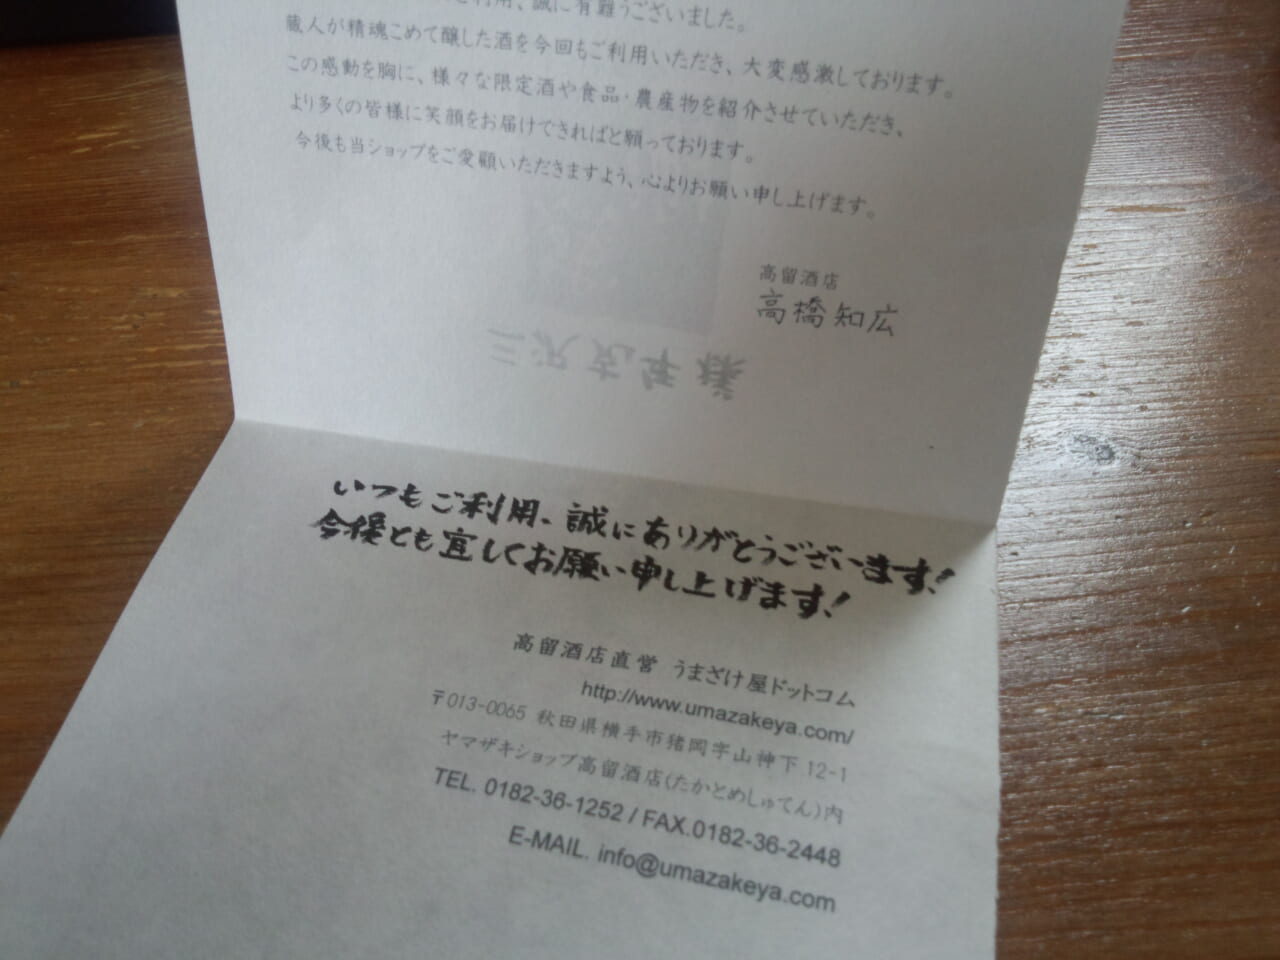 ご利用、誠に有難うございました。
蔵人が精魂こめて醸した酒を今回もご利用いただき、大変感激しております。
この感動を胸に、様々な限定酒や食品・農産物を紹介させていただき、
より多くの皆様に笑顔をお届けできればと願っております。
今後も当ショップをご愛顧いただきますよう、心よりお願い申し上げます。
高留酒店
高橋知広
いつもご利用、誠にありがとうございます!
今後とも宜しくお願い申し上げます!
高留酒店直営 うまざけ屋ドットコム
http://www.umazakeya.com/
〒013-0065 秋田県横手市猪岡字山神下 12-1
ヤマザキショップ高留酒店(たかとめしゅてん)内
TEL. 0182-36-1252 / FAX.0182-36-2448
E-MAIL. info@umazakeya.com